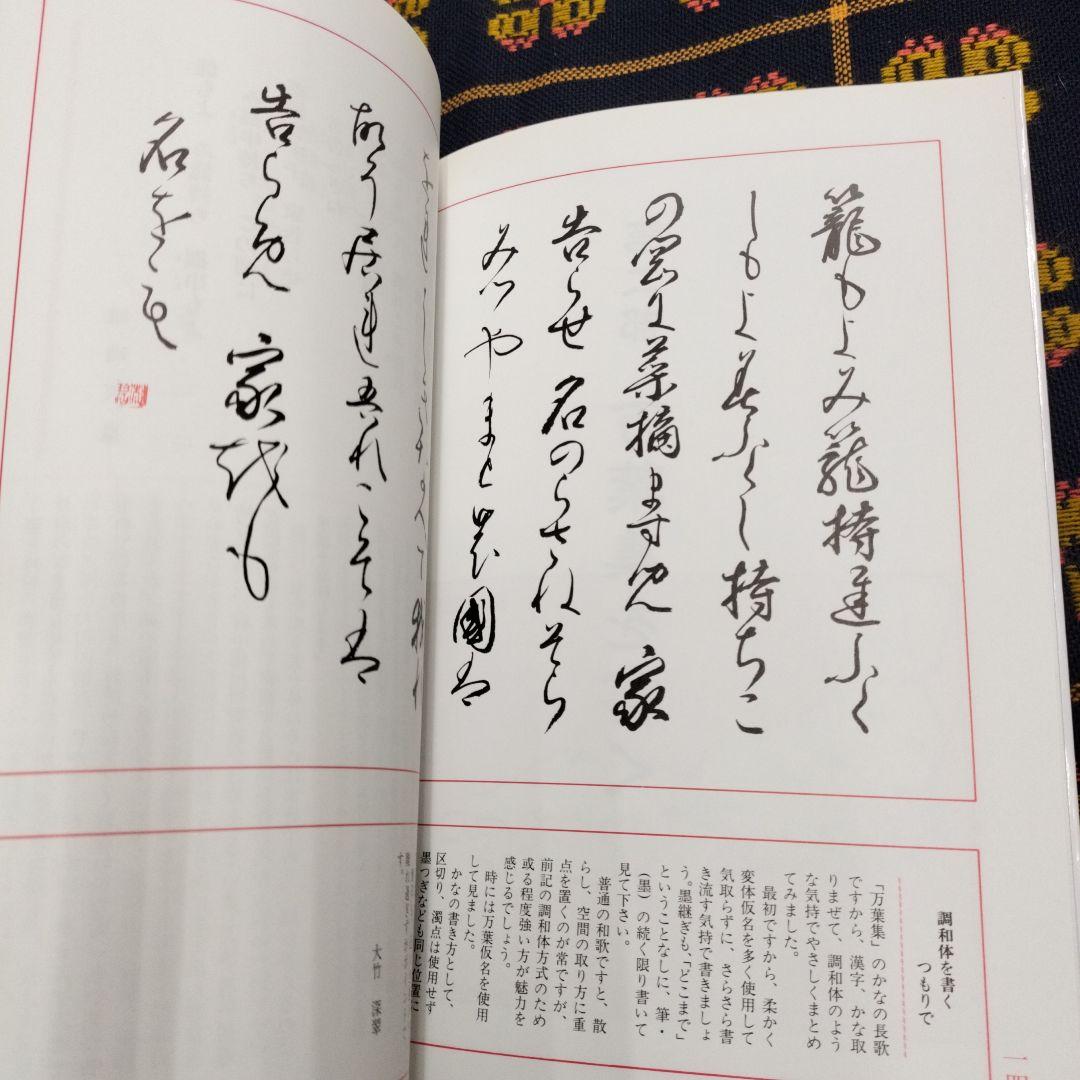 籠もよみ籠持遅ふく
しもよ美ふくし持ちこ
の岡に菜摘ます児 家
告らせ 名のらさねそら
みつやまとの國は
居連吾れこそは
告らめ 家越も
名をも
調和体を書く
つもりで
「万葉集」のかなの長歌
ですから、漢字、かな取
りまぜて、調和体のよう
な気持でやさしくまとめ
てみました。
最初ですから、柔かく
変体仮名を多く使用して
気取らずに、さらさら書
き流す気持で書きましょ
う。墨継ぎも、「どこまで」
ということなしに、筆・
(墨)の続く限り書いて
見て下さい。
普通の和歌ですと、散
らし、空間の取り方に重
点を置くのが常ですが、
前記の調和体方式のため
或る程度強い方が魅力を
感じるでしょう。
時には万葉仮名を使用
して見ました。
かなの書き方として、
区切り、濁点は使用せず
墨つぎなども同じ位置に
す。
大竹